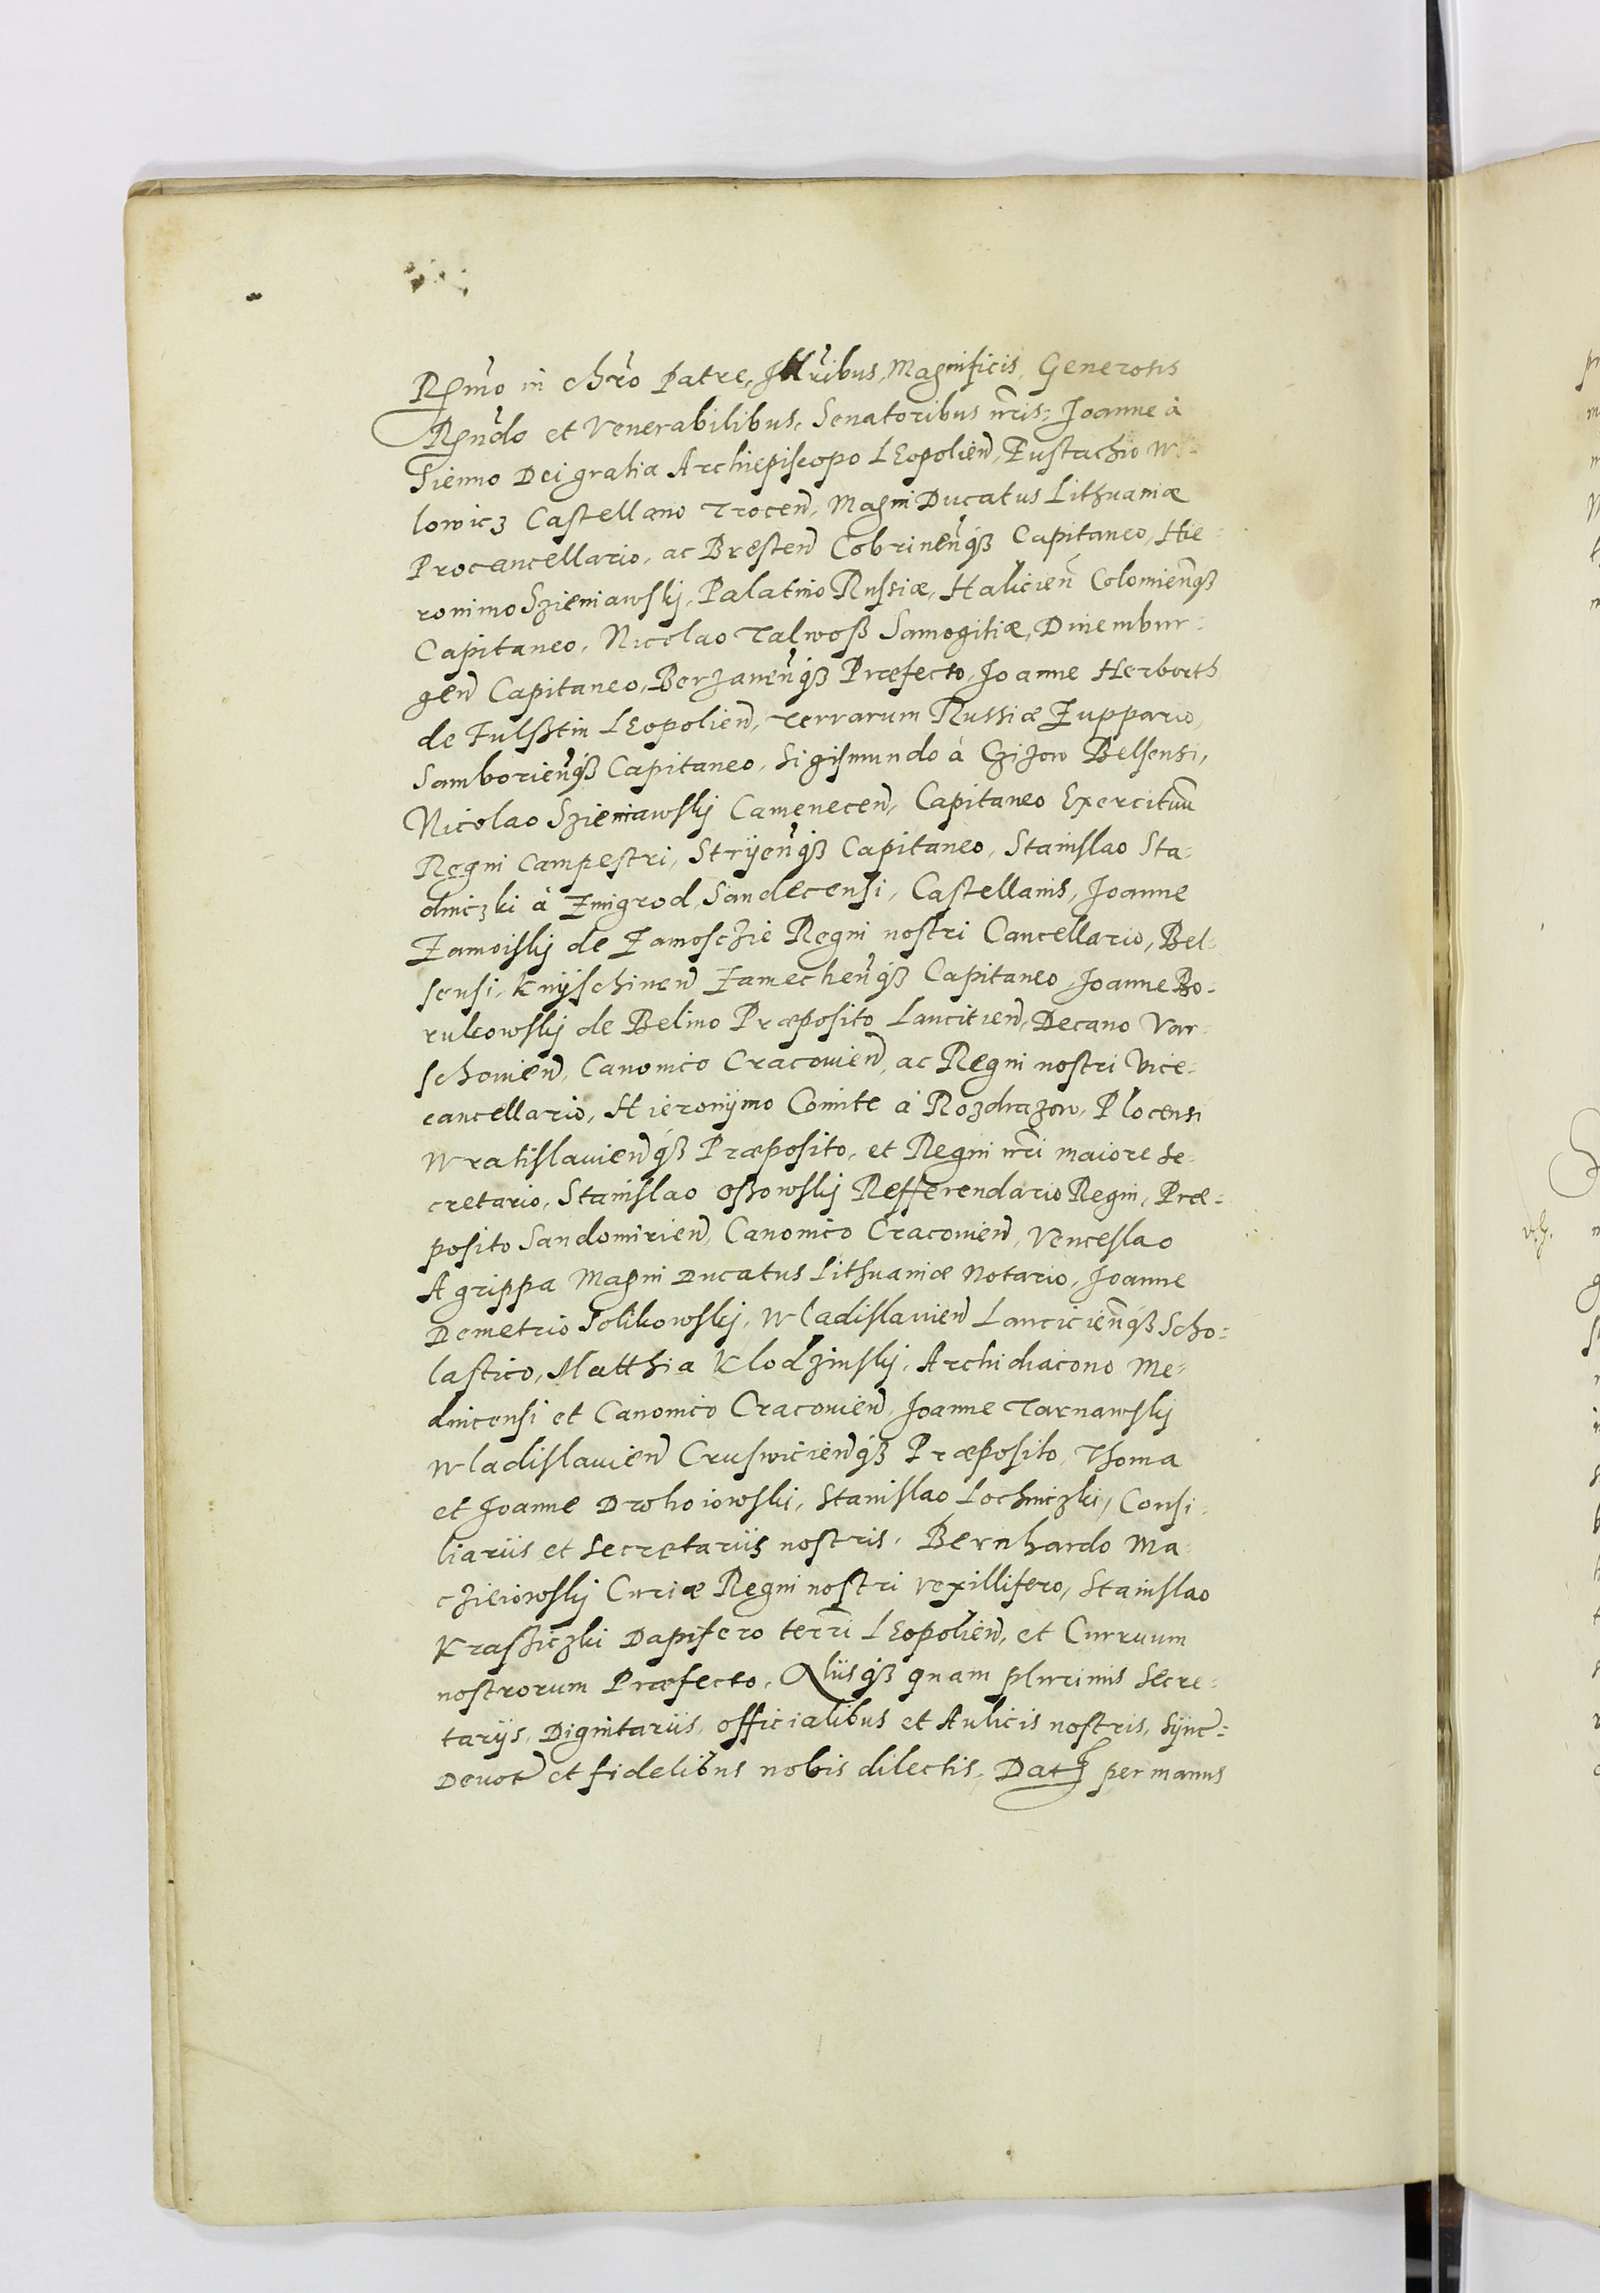 Rmo in chro Patre, Illribus, Magnificis, Generosis
Rndo et Venerabilibus, Senatoribus nris: Joanne à
Sienno Dei gratia Archiepiscopo LEopolien, Eustachio Wo-
lowicz Castellano Trocen, Magni Ducatus Lithuaniæ
Procancellario, ac Bresten Cobrinenqß Capitaneo, Hie-
ronimo Szieniawskÿ, Palatino Russiæ, Halicien Colomienqß
Capitaneo, Nicolao Talwoß Samogitiæ, Dinembur-
gen Capitaneo, Borzanenqß Præfecto, Joanne Herborth
de Fulsstin LEopolien, terrarum Russiæ Zuppario,
Samborienqß Capitaneo, Sigismundo à Czizow Belsensi,
Nicolao Szieniawskÿ Camenecen, Capitaneo Exercituu
Regni Campestri, Strÿenqß Capitaneo, Stanislao Sta-
dniczki à Zmigrod, Sandecensi, Castellanis, Joanne
Zamoiskÿ de Zamosczie Regni nostri Cancellario, Bel-
sensi, Knÿschinen Zamechenqß Capitaneo, Joanne Bo-
rukowskÿ de Belino Præposito Lancitien, Decano Var-
schovien, Canonico Cracovien, ac Regni nostri Vice-
cancellario, Hieronÿmo Comite à Rozdrazow, Plocensi
Wratislavienqß Præposito, et Regni nri maiore Se-
cretario, Stanislao oßowskÿ Refferendario Regni, Præ-
posito Sandomirien, Canonico Cracovien, Venceslao
Agrippa Magni Ducatus Lithuaniæ Notario, Joanne
Demetrio Solikowskÿ, Wladislavien Lancicienqß Scho-
lastico, Matthia Klodzinskÿ, Archidiacono Me-
dnicensi et Canonico Cracovien, Joanne Tarnawskÿ
Wladislavien Cruswicienqß Præposito, Thoma
et Joanne Drohoiowski, Stanislao Lochniczki, Consi-
liariis et Secretariis nostris, Bernhardo Ma-
czieiowskÿ Curiæ Regni nostri vexillifero, Stanislao
Krasziczki Dapifero terri LEopolien, et Curruum
nostrorum Præfecto, Aliisqß quam plurimis Secre-
tariis, Dignitariis, officialibus et Aulicis nostris, Sÿnc-
Devot et fidelibus nobis dilectis, Dat per manus